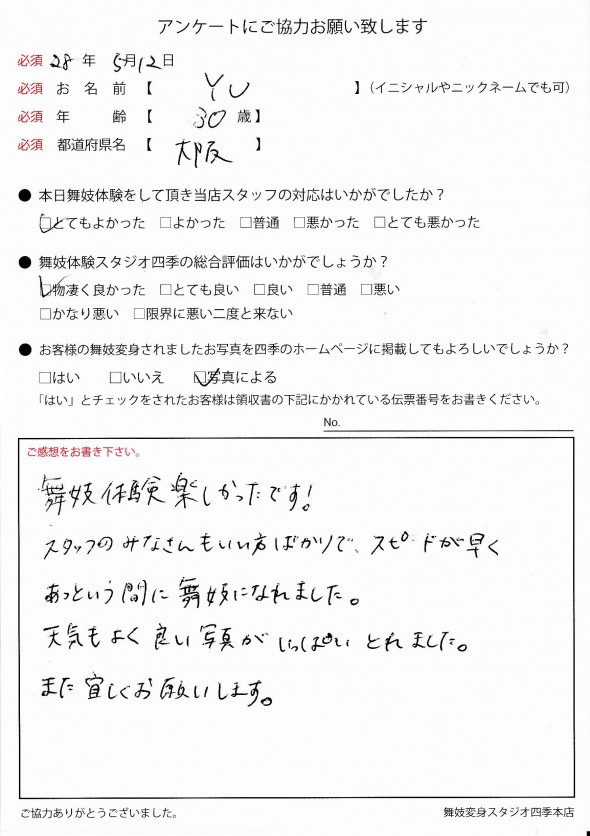 アンケートにご協力お願い致します
必須 28 年 5月12日
必須 お 名 前 【 YU 】（イニシャルやニックネームでも可）
必須 年 齢 【 30 歳】
必須 都道府県名 【 大阪 】
● 本日舞妓体験をして頂き当店スタッフの対応はいかがでしたか？
☑とてもよかった □よかった □普通 □悪かった □とても悪かった
● 舞妓体験スタジオ四季の総合評価はいかがでしょうか？
☑物凄く良かった □とても良い □良い □普通 □悪い
□かなり悪い □限界に悪い二度と来ない
● お客様の舞妓変身されましたお写真を四季のホームページに掲載してもよろしいでしょうか？
□はい □いいえ ☑写真による
「はい」とチェックをされたお客様は領収書の下記にかかれている伝票番号をお書きください。
No.
ご感想をお書き下さい。
舞妓体験楽しかったです!
スタッフのみなさんもいい方ばかりで、スピードが早く
あっという間に舞妓になれました。
天気もよく良い写真がいっぱいとれました。
また宜しくお願いします。
ご協力ありがとうございました。
舞妓変身スタジオ四季本店